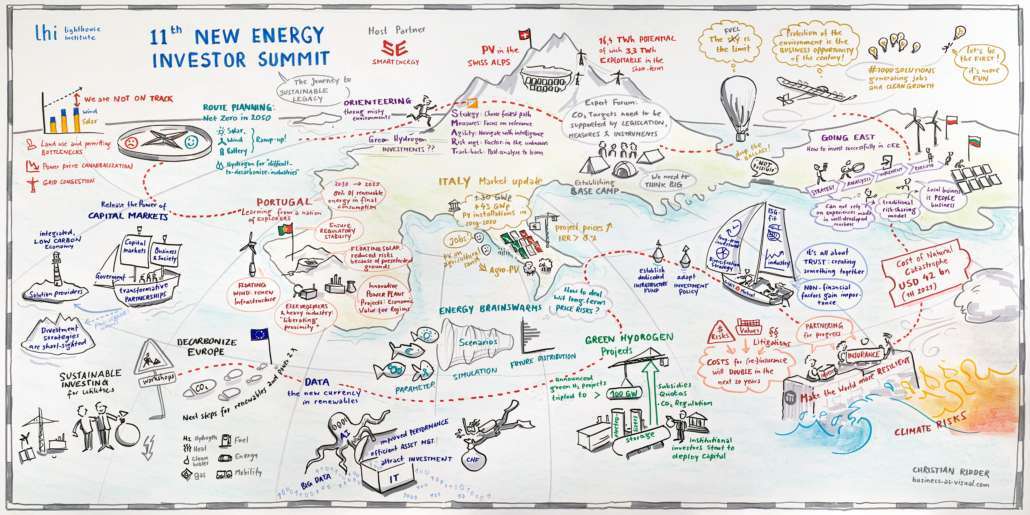 lhi lighthouse
institute
11th NEW ENERGY
INVESTOR SUMMIT
Host Partner
SE
SMARTENERGY
The journey to
SUSTAINABLE
LEGACY
PV in the
SWISS ALPS
16,4 TWh POTENTIAL
of with 3,3 TWh
EXPLOITABLE in the
Short-term
FUEL
The sky is
the limit
Protection of the
environment is the
BUSINESS OPPORTUNITY
of the century!
#1000SOLUTIONS
generating jobs
and CLEAN GROWTH
Let's be
the FIRST!
it's more
FUN
We are NOT ON TRACK
Wind
Solar
Land use and permitting
BOTTLENECKS
Power price CANNIBALIZATION
GRID CONGESTION
ROUTE PLANNING:
Net Zero in 2050
Solar,
Wind
Battery
Ramp-up!
Hydrogen for "difficult-
to-decarbonize-industries"
ORIENTEERING
through misty
environments
Green Hydrogen
INVESTMENTS??
Strategy: Chose fastest path
Measures: Focus on relevance
Agility: Navigate with intelligence
Risk mgt: Factor in the unknown
Track-back: Post-analysis to learn
Expert Forum:
CO2 Targets need to be
supported by LEGISLATION,
MEASURES & INSTRUMENTS
Establishing
BASE CAMP
We need to
THINK BIG
drop the
ballast!
NOT
possible
GOING EAST
How to invest successfully in CEE
STRATEGY
ANALYSIS
Can not rely
on experiences made in
well-developed
markets
traditional
risk-sharing
model
Local business
is PEOPLE
business
Release the Power of
CAPITAL MARKETS
integrated,
LOW CARBON
Economy
Solution providers
Capital
markets
Business
& Society
Government
transformative
PARTNERSHIPS
Divestment
strategies
are short-sighted
PORTUGAL
Learning from a nation
of explorers
80% of renewable
energy in final
consumption
Ensure
REGULATORY
STABILITY
FLOATING SOLAR
reduced risks
because of
grounds
FLOATING
WIND TOWER
Infrastructure
& heavy industry
"liberating
proximity"
Innovative
POWER PLANT
Projects: Economic
Value for Regions
ITALY Market update
+30 GWp
+43 GWp
PV installations in
2019-2030
Jobs
PV on
agricultural
land
Agro-PV
project prices
IRR > 8%
establish
dedicated
INFRASTRUCTURE
FUND
adapt
INVESTMENT
POLICY
ESG-
Fit
Diversification
Strategy
industry
it's all about
TRUST: creating
something together
NON-financial
factors gain impor-
tance
Cost of Natural
Catastrophe
USD 42 bn
(1H 2021)
DECARBONIZE
EUROPE
workshops
CO2
Next steps for renewables
H2 Hydrogen
Heat
Clean
water
gas
Fuel
Energy
Mobility
SUSTAINABLE
INVESTING
for Utilities
ENERGY BRAINSWARMS
Scenarios
PARAMETER
SIMULATION
FUTURE DISTRIBUTION
How to deal
with long-term
PRICE RISKS?
DATA
the new currency
in renewables
AI
BIG DATA
improved PERFORMANCE
efficient ASSET MGT.
attract INVESTMENT
IT
CHF
GREEN HYDROGEN
Projects
Announced
green H2 projects
tripled to >
100 GW
Storage
Subsidies
Quotas
CO2 Regulation
institutional
investors start to
deploy Capital
Risks
Values
Litigations
COSTS for (re)insurance
will DOUBLE in the
next 20 years
PARTNERING
for progress
INSURANCE
Make the World more RESILIENT
CLIMATE RISKS
CHRISTIAN RIDDER
business-as-visual.com